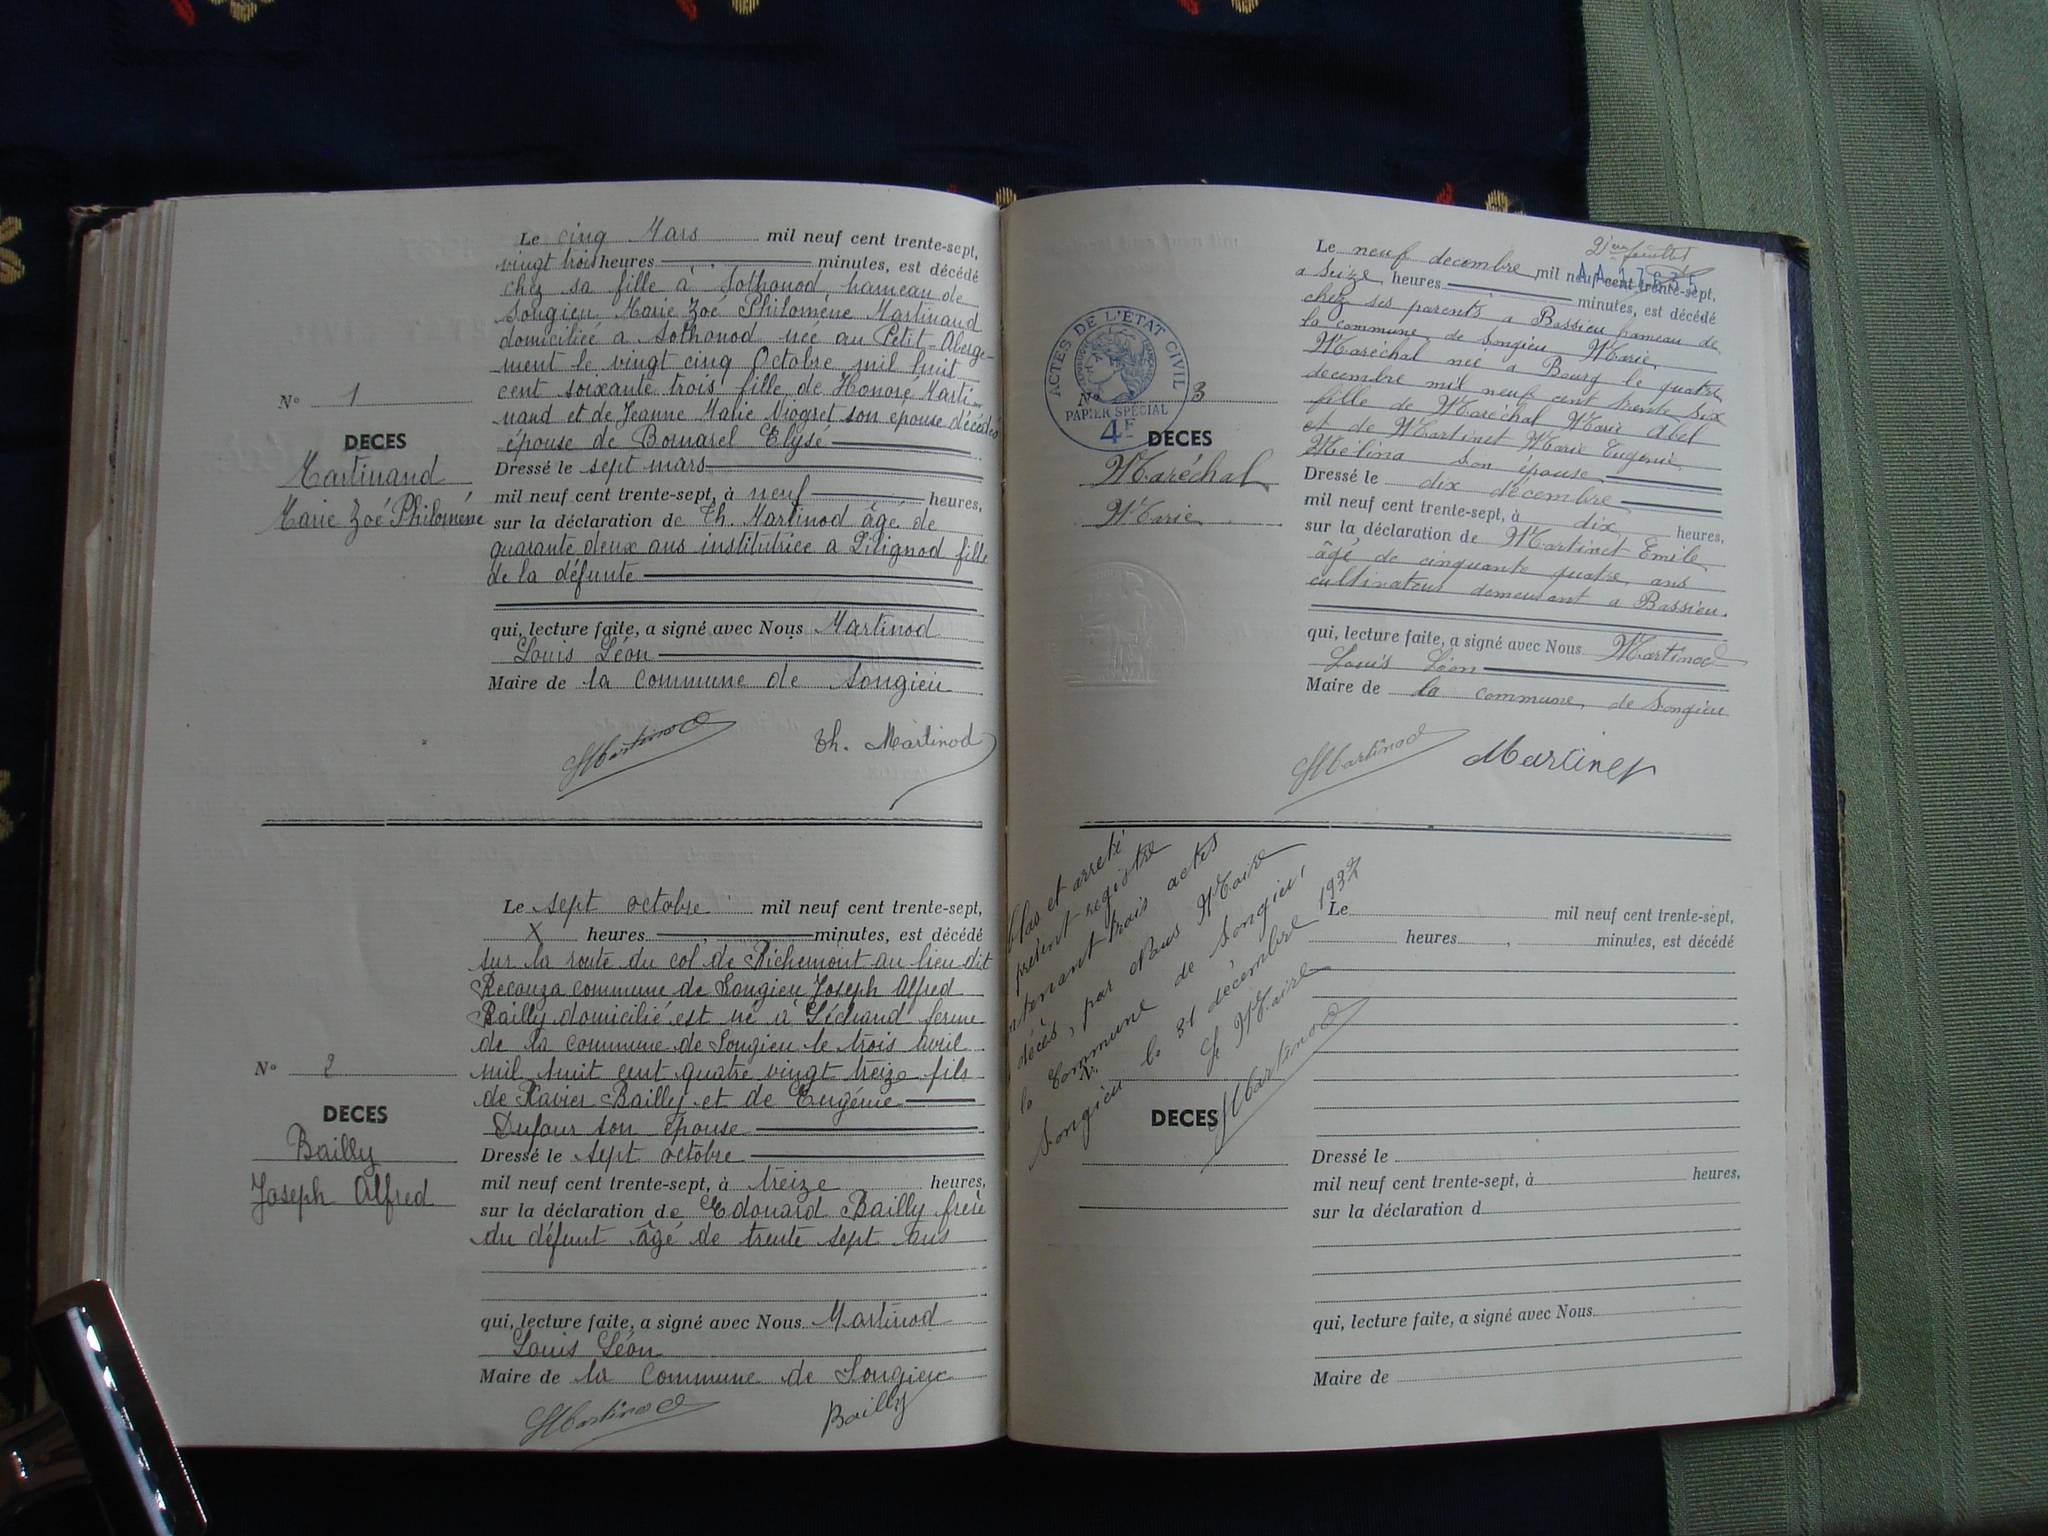 Le cinq Mars mil neuf cent trente-sept,
vingt trois heures minutes, est décédé
chez sa fille à Sothonod hameau de
Songieu Marie Zoé Philomène Martinand
domiciliée a Sothonod née au Petit-Aberge-
ment le vingt cinq Octobre mil huit
cent soixante trois fille de Honoré Marti-
nand et de Jeanne Marie Viogret son epouse décédés
épouse de Bornarel Elysé
Dressé le sept mars
mil neuf cent trente-sept, à neuf heures,
sur la déclaration de Th. Martinod âgé de
quarante deux ans institutrice a fille
de la défunte
qui, lecture faite, a signé avec Nous Martinod
Louis Léon
Maire de la commune de Songieu
Martinod Th. Martinod
N° 1
DECES
Martinand
Marie Zoé Philomène
Le sept octobre mil neuf cent trente-sept,
X heures minutes, est décédé
sur la route du col de Richemont au lieu dit
commune de Songieu Joseph Alfred
Bailly domicilié est né à ferme
de la commune de Songieu le trois avril
mil huit cent quatre vingt treize fils
de Xavier Bailly et de Eugénie
Dufour son épouse
Dressé le sept octobre
mil neuf cent trente-sept, à treize heures,
sur la déclaration de Edouard Bailly frère
du défunt âgé de trente sept ans
qui, lecture faite, a signé avec Nous Martinod
Louis Léon
Maire de la Commune de Songieu
Martinod Bailly
N° 2
DECES
Bailly
Joseph Alfred
2ième feuillet
Le neuf decembre mil neuf cent trente-sept,
a seize heures minutes, est décédé
chez ses parents a Bassieu hameau de
la commune de Songieu Marie
Maréchal née a Bourg le quatre
decembre mil neuf cent trente six
fille de Maréchal Marie Abel
et de Martinet Marie Eugenie
Mélina son épouse
Dressé le dix décembre
mil neuf cent trente-sept, à dix heures,
sur la déclaration de Martinet Emile
âgé de cinquante quatre ans
cultivateur demeurant a Bassieu
qui, lecture faite, a signé avec Nous Martinod
Louis Léon
Maire de la commune de Songieu
Martinod Martinet
ACTES DE L'ÉTAT CIVIL
PAPIER SPÉCIAL
4F
N° 3
DECES
Maréchal
Marie
Clos et arreté
présent registre
ntenant trois actes
décès, par Nous Maire
la Commune de Songieu,
Songieu le 31 décembre 1937
Le Maire
Martinod
N°
DECES
Le mil neuf cent trente-sept,
heures, minutes, est décédé
Dressé le
mil neuf cent trente-sept, à heures,
sur la déclaration d
qui, lecture faite, a signé avec Nous
Maire de